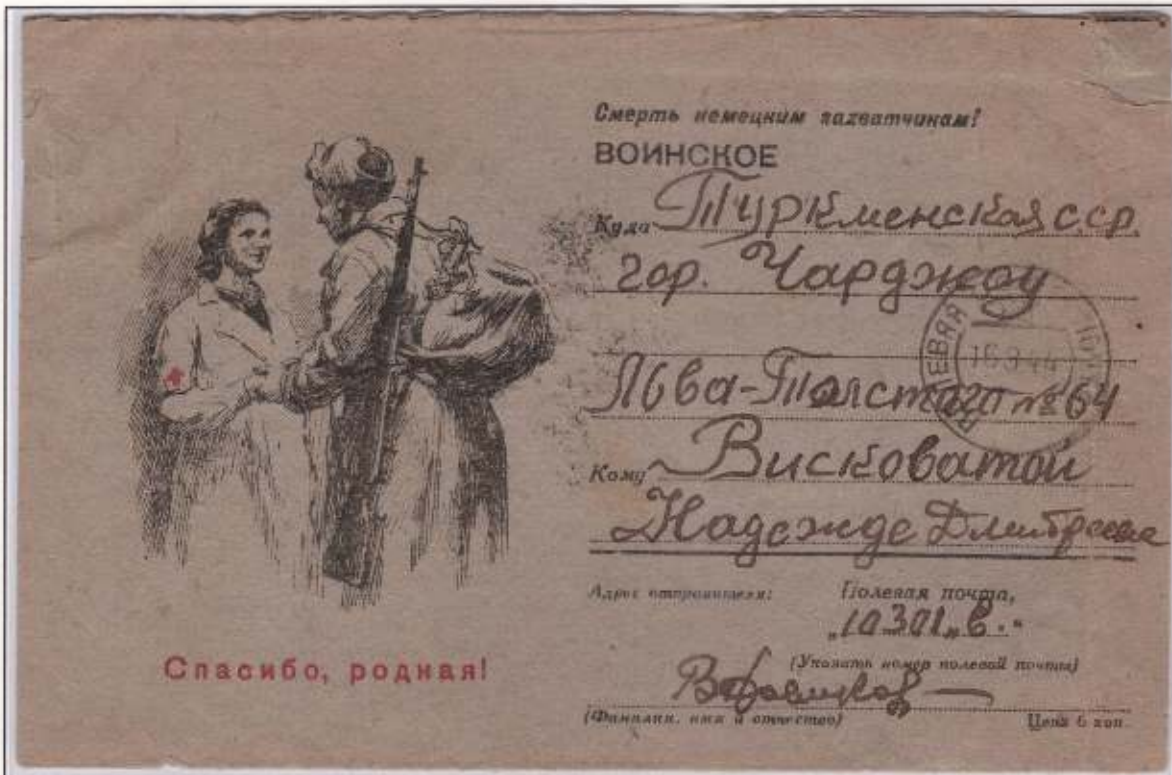 Смерть немецким захватчикам!
ВОИНСКОЕ
Куда Туркменская сср.
гор. Чарджоу
Льва-Толстаго № 64
Кому Висковатой
Надежде Дмитреевне
Адрес отправителя: Полевая почта,
„10301„В.“
(Указать номер полевой почты)
(Фамилия, имя и отчество) Цена 6 коп.
Спасибо, родная!
16 3 44